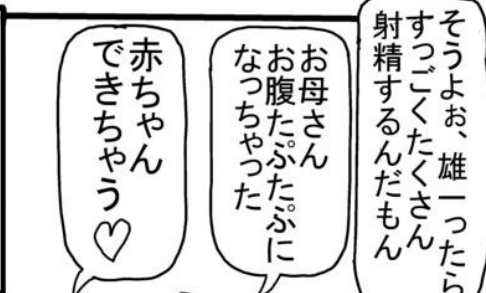 そうよぉ、雄一ったら
すっごくたくさん
射精するんだもん
お母さん
お腹たぷたぷに
なっちゃった
赤ちゃん
できちゃう♡